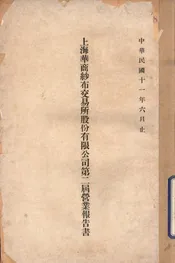 中華民國十一年六月止
上海華商紗布交易所股份有限公司第二屆營業報告書